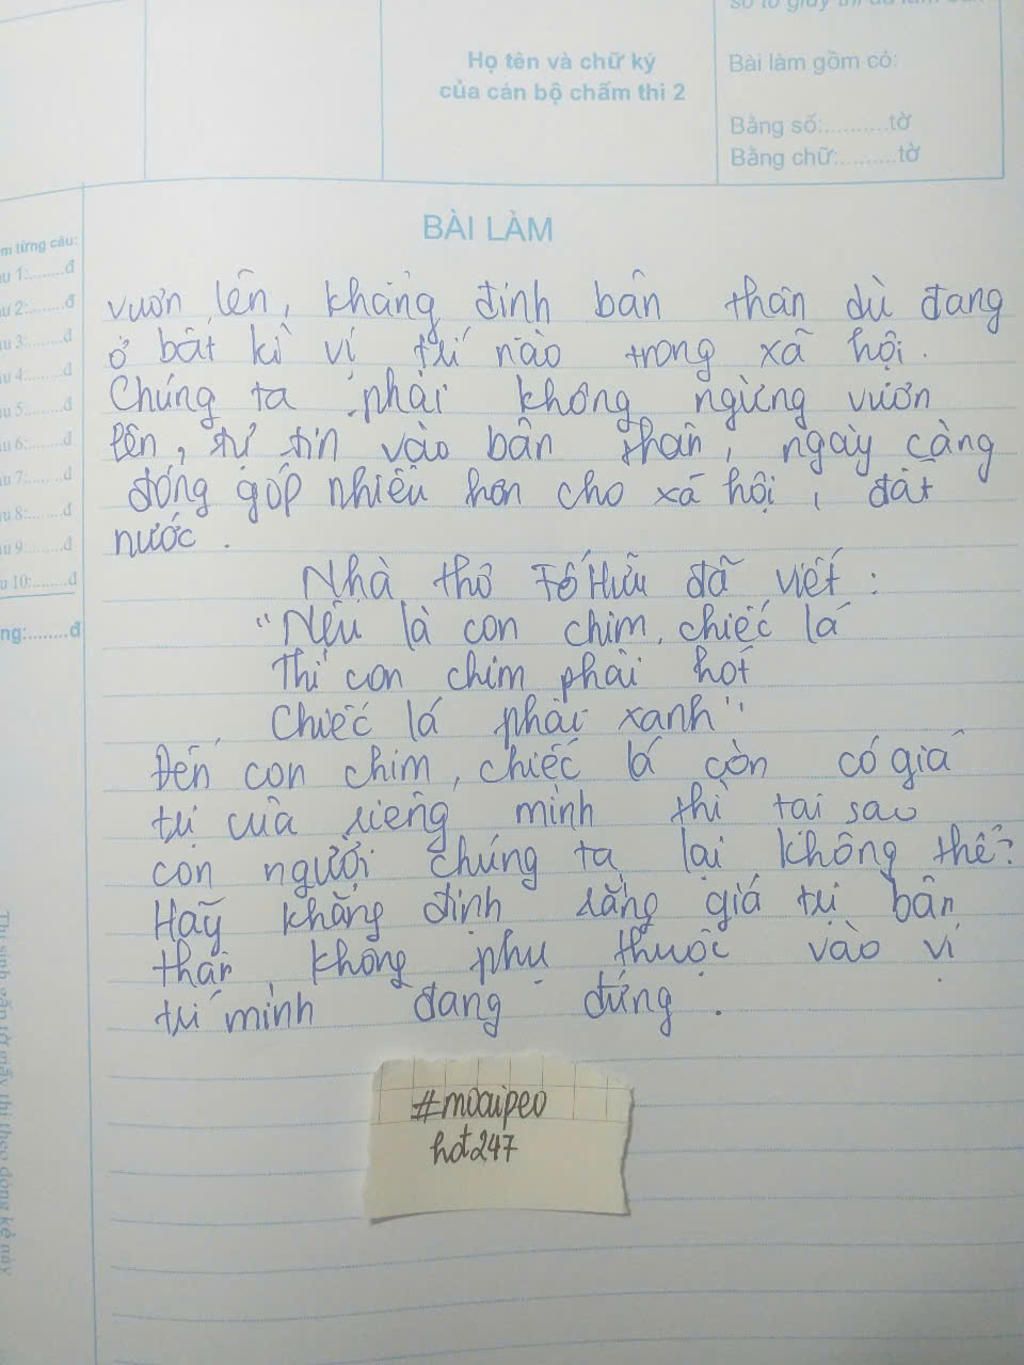 Họ tên và chữ ký
của cán bộ chấm thi 2
Bài làm gồm có:
Bằng số:..........tờ
Bằng chữ:.........tờ
BÀI LÀM
m từng câu:
u 1:.......đ
u 2:.......đ
u 3:.......đ
u 4:.......đ
u 5:.......đ
u 6:.......đ
u 7:.......đ
u 8:.......đ
u 9:.......đ
u 10:.......đ
ng:.......đ
vươn lên, khẳng định bản thân dù đang
ở bất kì vị trí nào trong xã hội.
Chúng ta phải không ngừng vươn
lên, tự tin vào bản thân, ngày càng
đóng góp nhiều hơn cho xã hội, đất
nước.
Nhà thơ Tố Hữu đã viết:
"Nếu là con chim, chiếc lá
Thì con chim phải hót
Chiếc lá phải xanh"
Đến con chim, chiếc lá còn có giá
trị của riêng mình thì tại sao
con người chúng ta lại không thể?
Hãy khẳng định rằng giá trị bản
thân không phụ thuộc vào vị
trí mình đang đứng.
#moaipeo
hot247